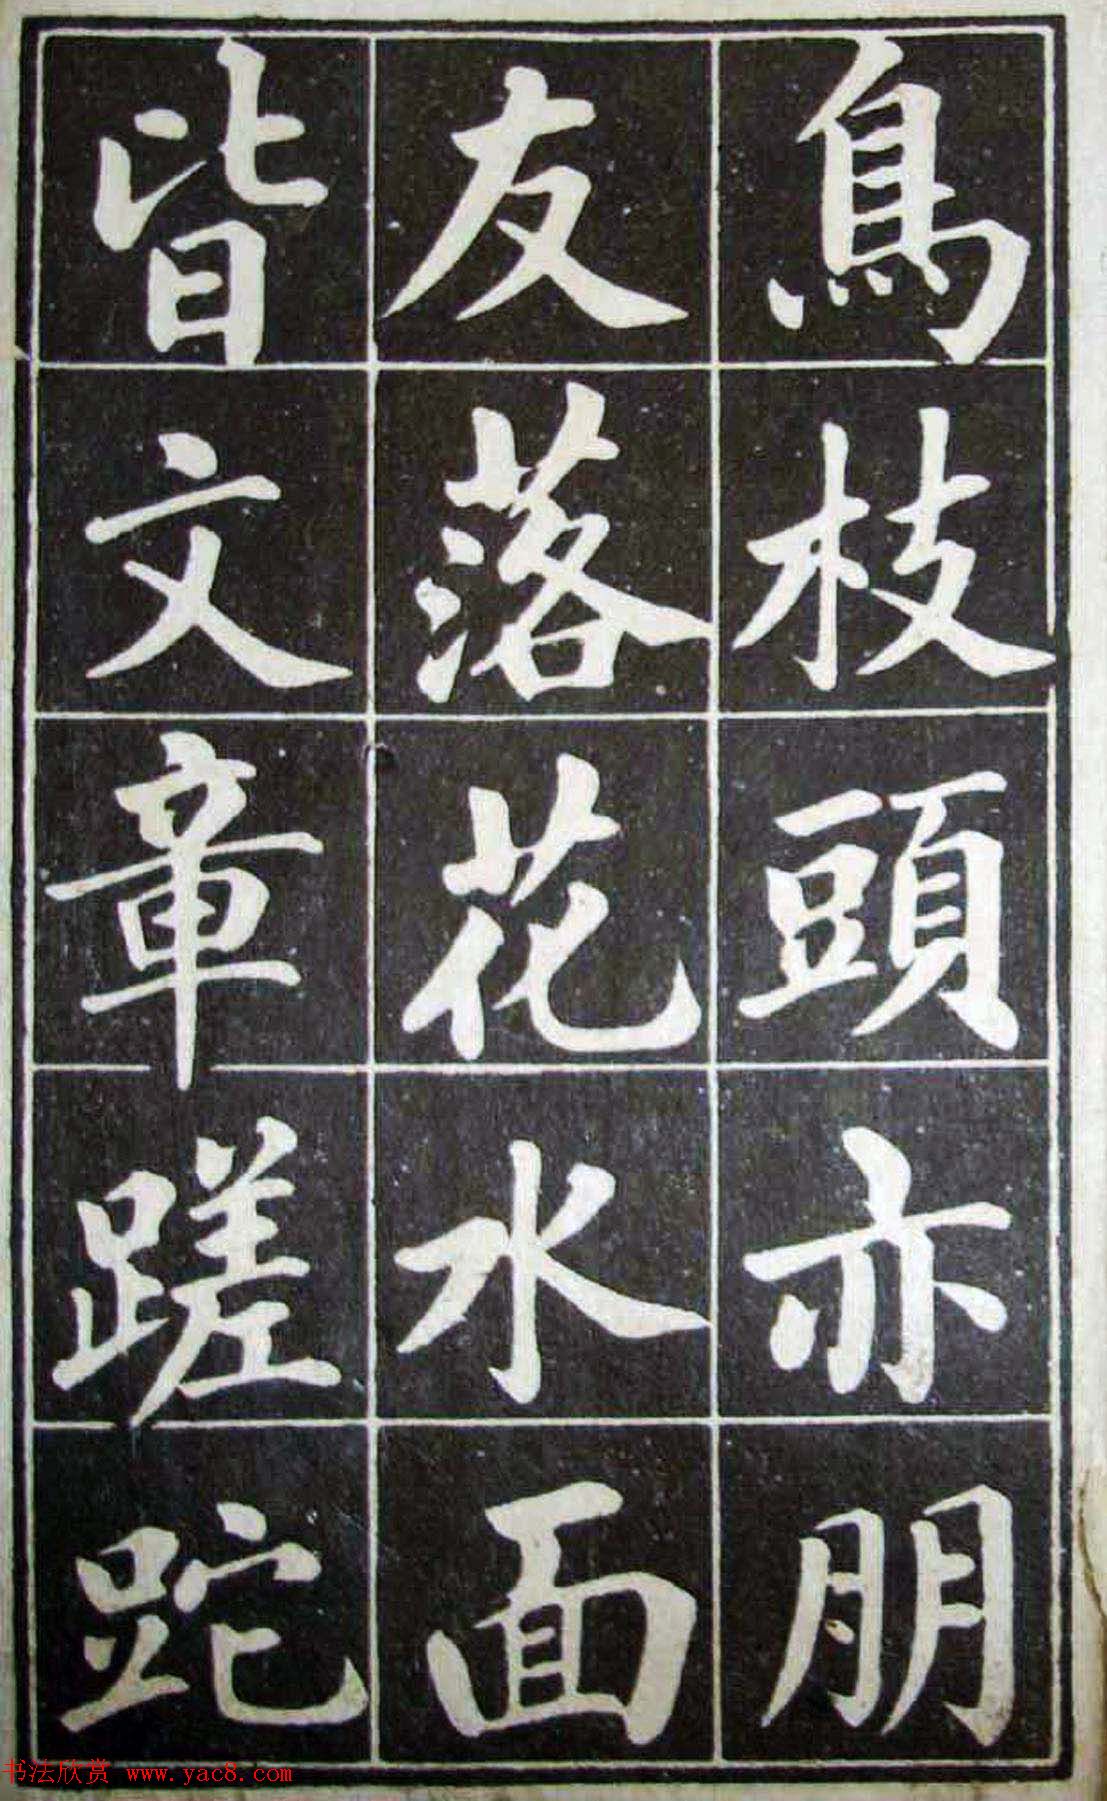 鳥枝頭亦朋
友落花水面
皆文章蹉跎
书法欣赏 www.yac8.com